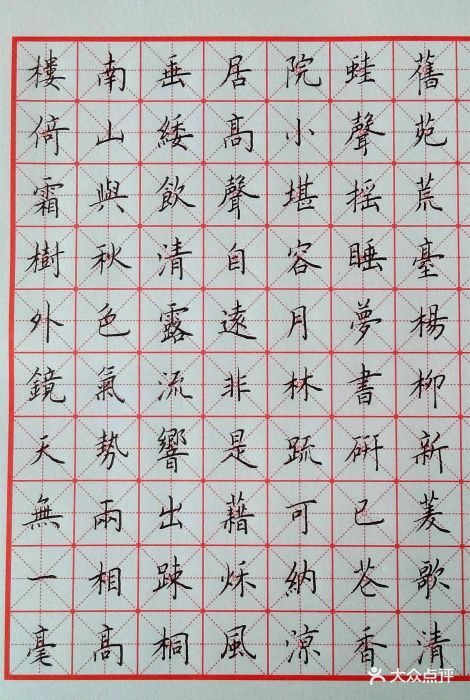 舊苑荒臺楊柳新菱歌清
蛙聲摇睡夢書研已苍香
院小堪容月林疏可納涼
居高聲自遠非是藉秌風
垂緌飲清露流響出疎桐
南山與秋色氣勢兩相高
樓倚霜樹外鏡天無一毫
大众点评